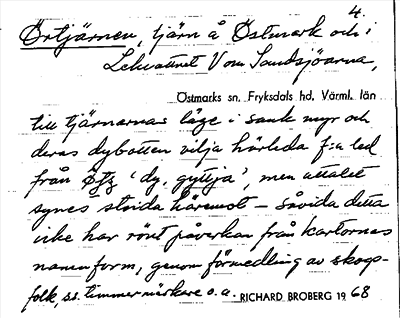 4.
Örtjärnen, tjärn å Östmark och i
Lekvattnet V om Sandsjöarna,
Östmarks sn. Fryksdals hd. Värml. län
till tjärnarnas läge i sank myr och
deras dybotten vilja härleda f:a led
från 'dy, gyttja', men uttalet
synes strida häremot – såvida detta
icke har rönt påverkan från kartornas
namnform, genom förmedling av skogs-
folk, ss. timmermärkare o. a. RICHARD BROBERG 1968